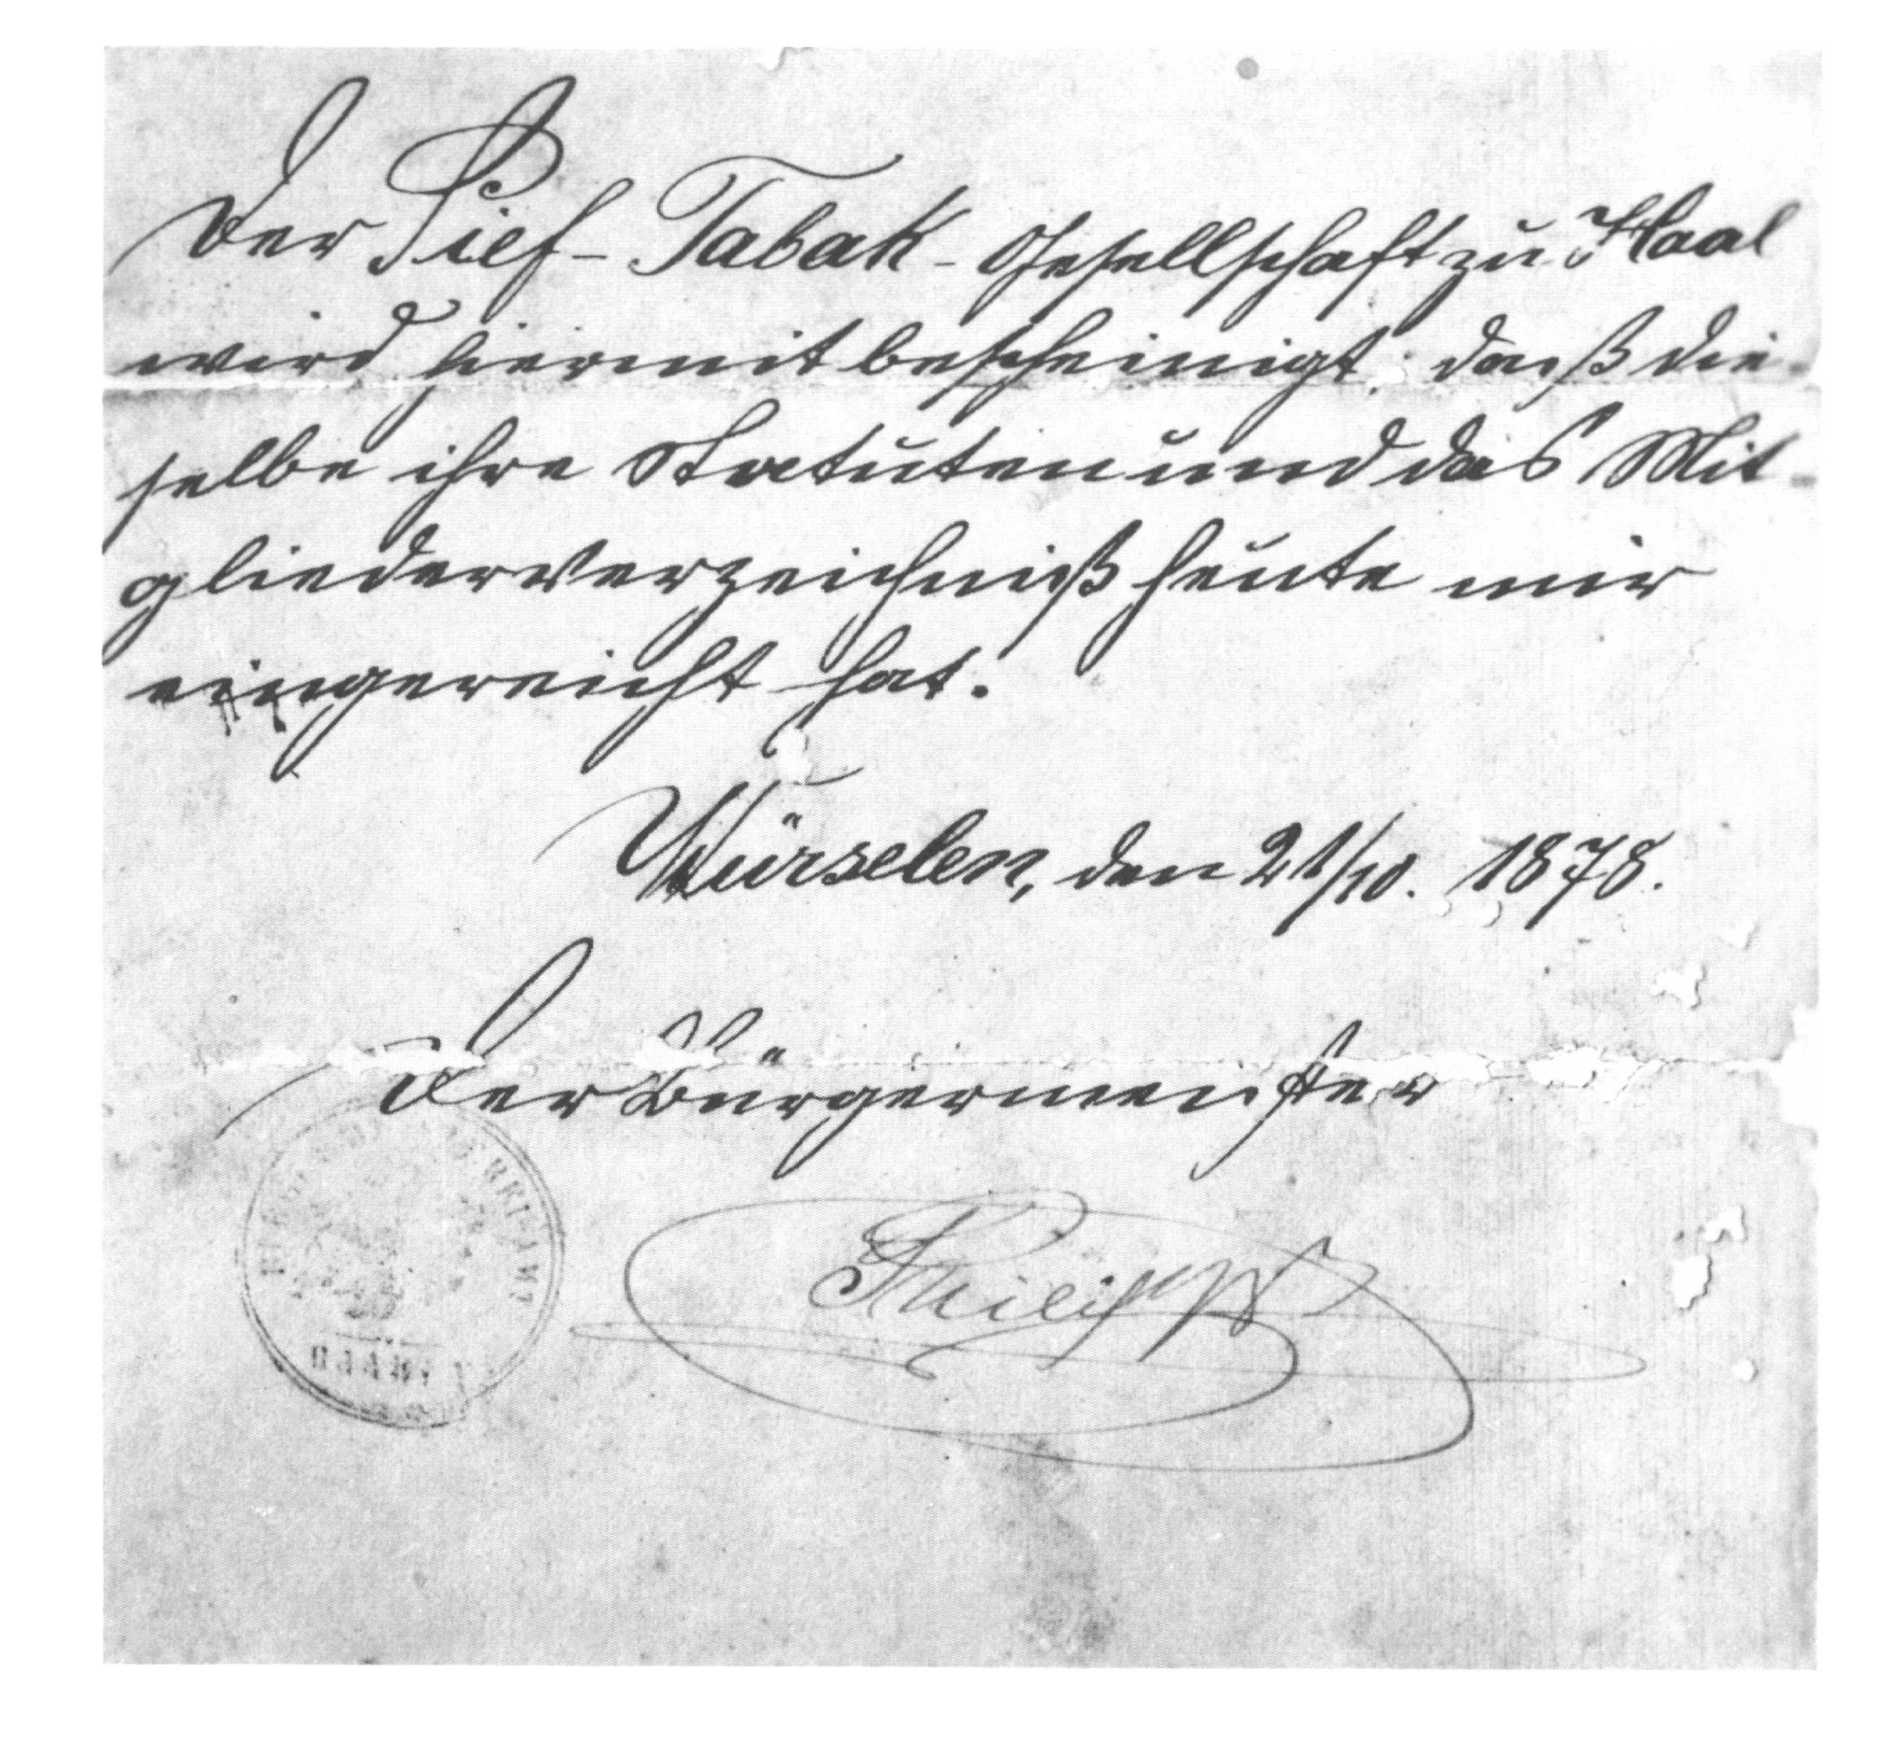 Der Pief-Tabak-Gesellschaft zu Haal
wird hiermit bescheinigt, daß die-
selbe ihre Statuten und das Mit-
gliederverzeichniß heute mir
eingereicht hat.
Würselen, den 21/10. 1878.
Der Bürgermeister
Philipps